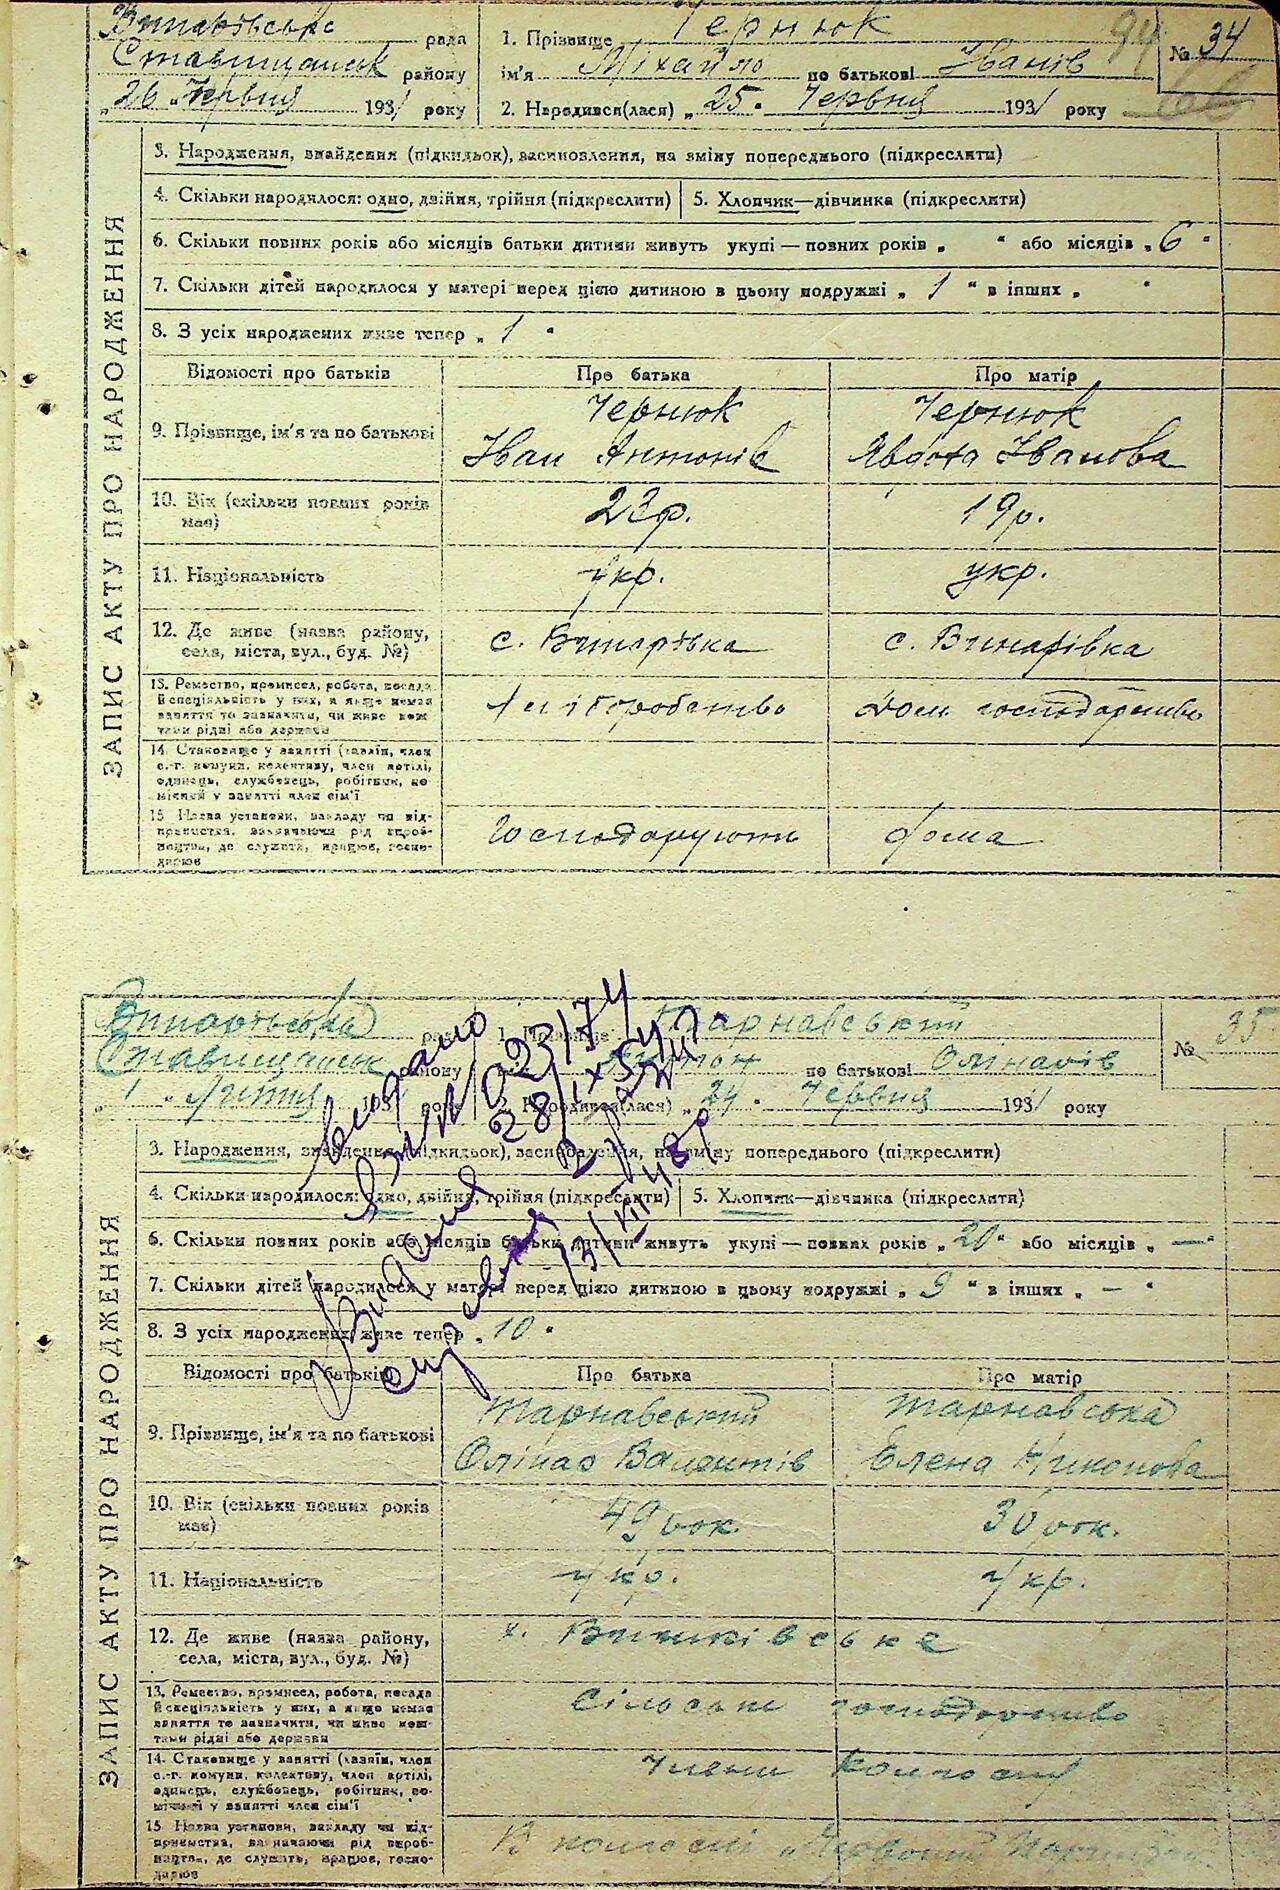 рада
Ставищанськ району
„26 „ Червня 1931 року
1. Прізвище Чернюк
ім'я Міхайло по батькові Іванів
2. Народився(лася) „25" Червня 1931 року
94
№ 34
ЗАПИС АКТУ ПРО НАРОДЖЕННЯ
3. Народження, знайдення (підкидьок), засиновлення, на зміну попереднього (підкреслити)
4. Скільки народилося: одно, двійня, трійня (підкреслити)
5. Хлопчик—дівчинка (підкреслити)
6. Скільки повних років або місяців батьки дитини живуть укупі — повних років „ " або місяців „6"
7. Скільки дітей народилося у матері перед цією дитиною в цьому подружжі „ 1 " в інших „ "
8. З усіх народжених живе тепер „ 1 "
Відомості про батьків
Про батька
Про матір
9. Прізвище, ім'я та по батькові
Чернюк
Іван Антонів
Чернюк
Явдоха Іванова
10. Вік (скільки повних років має)
23р.
19р.
11. Національність
укр.
укр.
12. Де живе (назва району, села, міста, вул., буд. №)
с. Винарівка
с. Винарівка
13. Ремество, промисел, робота, посада й спеціяльність у них, а якщо немає заняття то зазначити, чи живе коштами рідні або держави
Хліборобство
Дом. господарство
14. Становище у занятті (хазяїн, член с.-г. комуни, колективу, член артілі, одинець, службовець, робітник, помічний у занятті член сім'ї
15. Назва установи, закладу чи підприємства, зазначаючи рід виробництва, де служить, працює, господарює
Господарують
дома
Винарівська рада
Ставищанськ району
„ 1 „ Липня 1931 року
1. Прізвище Тарнавський
по батькові Олінаів
2. Народився(лася) „24" Червня 1931 року
№ 35
видано
023174
28/IX 54
ЗАПИС АКТУ ПРО НАРОДЖЕННЯ
3. Народження, знайдення (підкидьок), засиновлення, на зміну попереднього (підкреслити)
4. Скільки народилося: одно, двійня, трійня (підкреслити)
5. Хлопчик—дівчинка (підкреслити)
6. Скільки повних років або місяців батьки дитини живуть укупі — повних років „20" або місяців „—"
7. Скільки дітей народилося у матері перед цією дитиною в цьому подружжі „ 9 " в інших „ — "
8. З усіх народжених живе тепер „10"
Відомості про батьків
Про батька
Про матір
9. Прізвище, ім'я та по батькові
Тарнавський
Тарновська
Елена Никонова
10. Вік (скільки повних років має)
49 рок.
30 рок.
11. Національність
укр.
укр.
12. Де живе (назва району, села, міста, вул., буд. №)
х.
13. Ремество, промисел, робота, посада й спеціяльність у них, а якщо немає заняття то зазначити, чи живе коштами рідні або держави
Сільське господарство
14. Становище у занятті (хазяїн, член с.-г. комуни, колективу, член артілі, одинець, службовець, робітник, помічний у занятті член сім'ї
Члени колгоспу
15. Назва установи, закладу чи підприємства, зазначаючи рід виробництва, де служить, працює, господарює
В колгоспі „Червоний